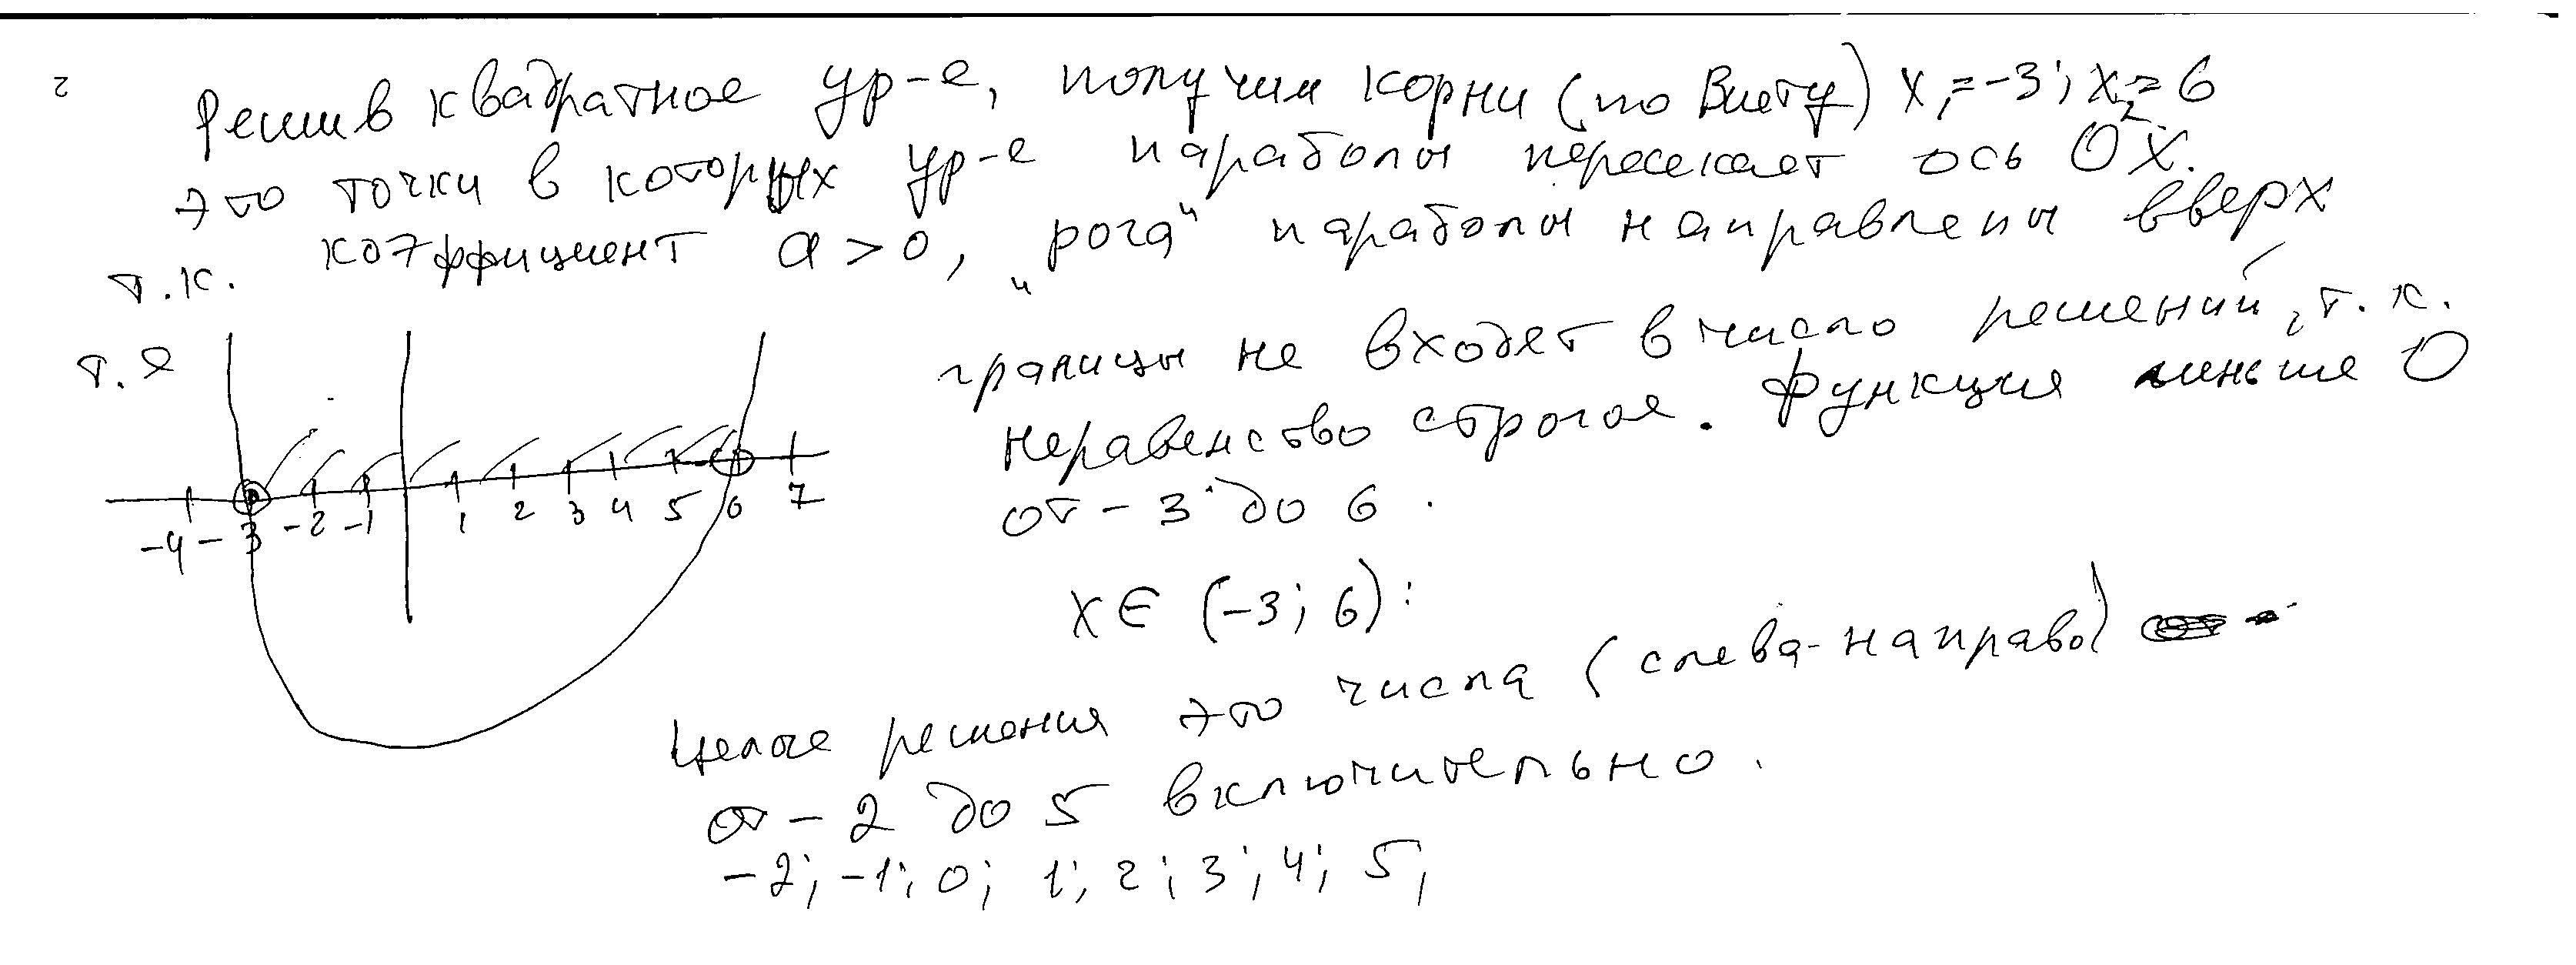 2
Решив квадратное ур-е, получим корни (по Виету) x₁=-3; x₂=6
это точки в которых ур-е параболы пересекает ось OX.
т.к. коэффициент a>0, „рога“ параболы направлены вверх
т.е
границы не входят в число решений, т.к.
неравенство строгое. Функция меньше 0
от -3 до 6.
-4 -3 -2 -1 1 2 3 4 5 6 7
x∈ (-3; 6):
Целые решения это числа (слева-направо)
от -2 до 5 включительно.
-2; -1; 0; 1; 2; 3; 4; 5;